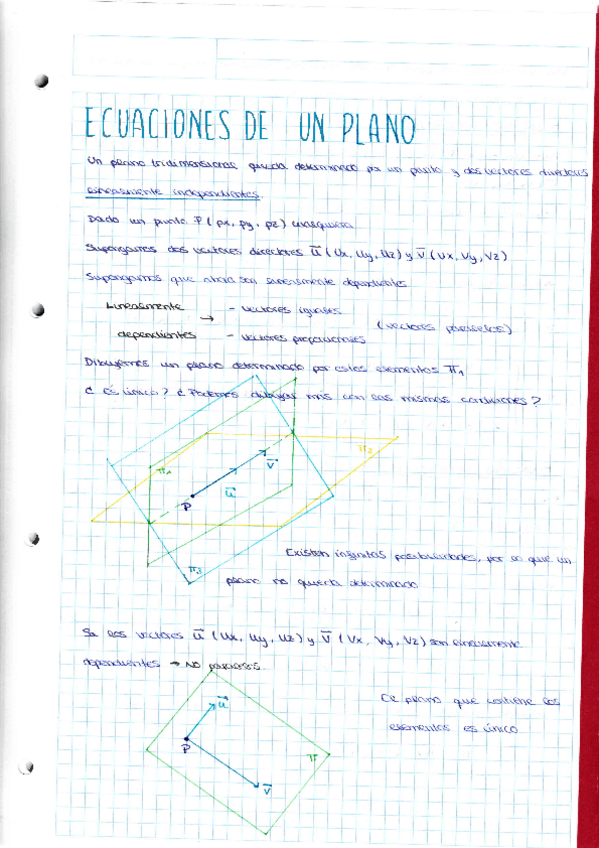 ECUACIONES DE UN PLANO
Un plano tridimensional queda determinado por un punto y dos vectores directores
linealmente independientes.
Dado un punto P (px, py, pz) cualquiera
Supongamos dos vectores directores u (Ux, Uy, Uz) y v (Vx, Vy, Vz)
Supongamos que ahora son linealmente dependientes
Linealmente → - vectores iguales
dependientes - vectores proporcionales (vectores paralelos)
Dibujemos un plano determinado por estos elementos π1
¿ es único? ¿ Podemos dibujar más con las mismas condiciones?
π1
π2
v
u
P
π3
Existen infinitas posibilidades, por lo que un
plano no queda determinado
Si los vectores u (Ux, Uy, Uz) y v (Vx, Vy, Vz) son linealmente
dependientes → NO paralelos
u
P
v
π
El plano que contiene los
elementos es único